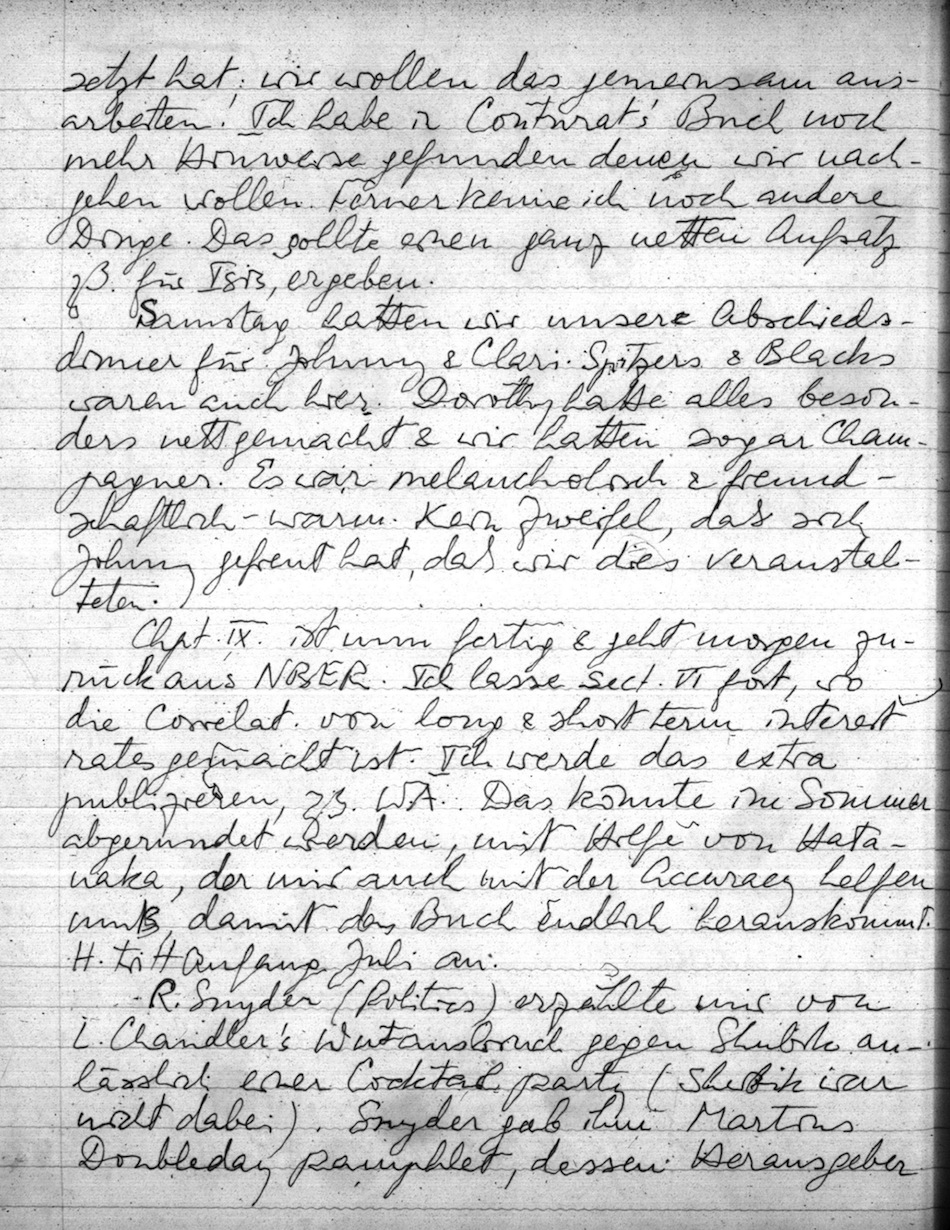 setzt hat; wir wollen das gemeinsam aus-
arbeiten. Ich habe in Couturat's Buch noch
mehr Hinweise gefunden denen wir nach-
gehen wollen. Ferner kenne ich noch andere
Dinge. Das sollte einen ganz netten Aufsatz
zB. für Isis, ergeben.
Samstag hatten wir unsere Abschieds-
dinner für Johnny & Clari. Spitzers & Blacks
waren auch hier. Dorothy hatte alles beson-
ders nett gemacht & wir hatten sogar Cham-
pagner. Es war melancholisch & freund-
schaftlich-warm. Kein Zweifel, daß sich
Johnny gefreut hat, daß wir dies veranstal-
teten.
Chpt. IX. ist nun fertig & geht morgen zu-
rück ans NBER. Ich lasse sect. VI fort, wo
die Correlat. von long & short term interest
rates gemacht ist. Ich werde das extra
publizieren, zB. WA. Das könnte im Sommer
abgerundet werden, mit Hilfe von Hata-
naka, der mir auch mit der Accuracy helfen
muß, damit das Buch endlich herauskommt.
H. tritt Anfang Juli an.
R. Snyder (Politics) erzählte mir von
L. Chandler's Wutausbruch gegen Shubik an-
lässlich einer Cocktail party (Shubik war
nicht dabei). Snyder gab ihm Martins
Doubleday pamphlet, dessen Herausgeber